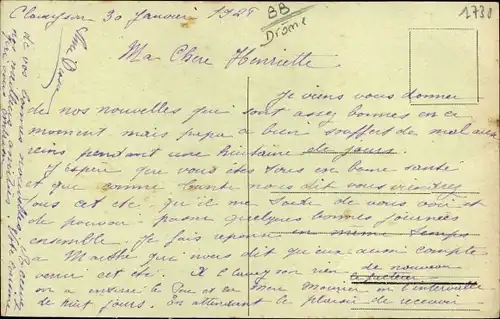 Claveyson 30 Janvier 1925
BB
Drôme
1730
Ma Chere Henriette
Je viens vous donner
de nos nouvelles qui sont assez bonnes en ce
moment mais papa a bien souffert de mal aux
reins pendant une huitaine de jours.
J'espere que vous êtes tous en bonne santé
et que comme tante nous dit vous viendrez
tous cet été, qu'il me tarde de vous voir et
de pouvoir passer quelques bonnes journées
ensemble. Je fais reponse en même temps
a Marthe qui nous dit qu'eux aussi compte
venir cet été. X Claveyson rien de nouveau
on a enterré le et la mere Mounier en l'intervalle
de huit jours. En attendant le plaisir de recevoir
de vos bonnes nouvelles, je
Votre cousine